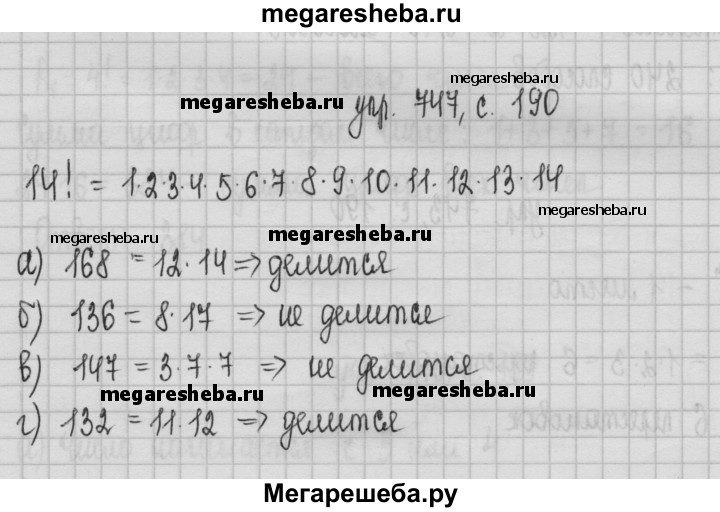 megaresheba.ru
megaresheba.ru
megaresheba.ru упр. 747, с. 190
14! = 1·2·3·4·5·6·7·8·9·10·11·12·13·14
megaresheba.ru
megaresheba.ru megaresheba.ru
а) 168 = 12·14 => делится
б) 136 = 8·17 => не делится
в) 147 = 3·7·7 => не делится
megaresheba.ru megaresheba.ru
г) 132 = 11·12 => делится
Мегарешеба.ру